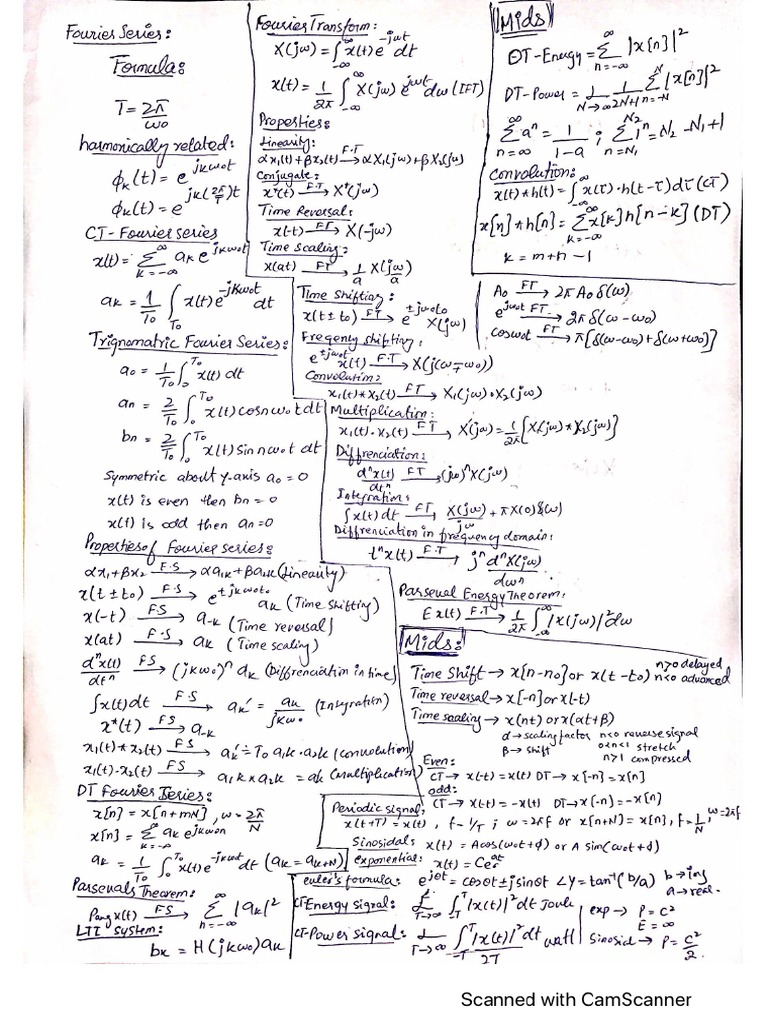 Fourier Series:
Formula:
T = 2π/ω0
harmonically related:
ϕk(t) = e^jkω0t
ϕk(t) = e^jk(2π/T)t
CT-Fourier series
x(t) = ∑ k=-∞ ^∞ ak e^jkω0t
ak = 1/T0 ∫T0 x(t) e^-jkω0t dt
Trignomatric Fourier Series:
a0 = 1/T0 ∫0^T0 x(t) dt
an = 2/T0 ∫0^T0 x(t) cosnω0t dt
bn = 2/T0 ∫0^T0 x(t) sin nω0t dt
Symmetric about y-axis a0 = 0
x(t) is even then bn = 0
x(t) is odd then an = 0
Properties of Fourier series:
αx1 + βx2 F.S→ αa1k + βa2k (Linearity)
x(t ± t0) F.S→ e^±jkω0t0 ak (Time shifting)
x(-t) FS→ a-k (Time reversal)
x(at) F.S→ ak (Time scaling)
d^n x(t)/dt^n FS→ (jkω0)^n ak (Diffrenciation in time)
∫x(t)dt F.S→ ak' = ak/jkω0 (Integration)
x*(t) FS→ a-k
x1(t)*x2(t) FS→ ak' = T0 a1k . a2k (convolution)
x1(t).x2(t) FS→ a1k * a2k = ak (multiplication)
DT Fourier Series:
x[n] = x[n+mN], ω = 2π/N
x[n] = ∑ k=-∞ ^∞ ak e^jkω0n
ak = 1/T0 ∫0^T0 x(t) e^-jkω0t dt (ak = ak+N)
Parsevals Theorem:
Pavg x(t) FS→ ∑ n=-∞ ^∞ |ak|^2
LTI system:
bk = H(jkω0)ak
Fourier Transform:
X(jω) = ∫-∞^∞ x(t) e^-jωt dt
x(t) = 1/2π ∫-∞^∞ X(jω) e^jωt dω (IFT)
Properties:
Linearity:
αx1(t) + βx2(t) F.T→ αX1(jω) + βX2(jω)
Conjugate:
x*(t) F.T→ X*(jω)
Time Reversal:
x(-t) F.T→ X(-jω)
Time Scaling:
x(at) FT→ 1/a X(jω/a)
Time Shifting:
x(t ± t0) FT→ e^±jωt0 X(jω)
Freqenty shifting:
e^±jω0t x(t) F.T→ X(j(ω∓ω0))
Convolution:
x1(t)*x2(t) FT→ X1(jω).X2(jω)
Multiplication:
x1(t).x2(t) FT→ X(jω) = 1/2π [X1(jω) * X2(jω)]
Diffrenciation:
d^n x(t)/dt^n FT→ (jω)^n X(jω)
Integration:
∫x(t)dt FT→ X(jω)/jω + πX(0)δ(ω)
Diffrenciation in frequency domain:
t^n x(t) F.T→ j^n d^n X(jω)/dω^n
Parseval Energy Theorem:
E x(t) F.T→ 1/2π ∫-∞^∞ |x(jω)|^2 dω
Mids
DT-Energy = ∑ n=-∞ ^∞ |x[n]|^2
DT-Power = L N→∞ 1/2N+1 ∑ n=-N ^N |x[n]|^2
∑ n=∞ ^∞ a^n = 1/1-a ; ∑ n=N1 ^N2 1^n = N2-N1+1
Convolution:
x(t)*h(t) = ∫-∞^∞ x(τ).h(t-τ)dτ (CT)
x[n]*h[n] = ∑ k=-∞ ^∞ x[k]h[n-k] (DT)
k = m+n-1
A0 FT→ 2πA0δ(ω)
e^jω0t FT→ 2πδ(ω-ω0)
cosω0t FT→ π[δ(ω-ω0)+δ(ω+ω0)]
Mids:
Time Shift → x[n-n0] or x(t-t0) n>0 delayed n<0 advanced
Time reversal → x[-n] or x(-t)
Time scaling → x(nt) or x(αt+β)
α → scaling factor n<0 reverse signal
β → shift 0<n<1 stretch
n>1 compressed
Even:
CT → x(-t) = x(t) DT → x[-n] = x[n]
odd:
CT → x(-t) = -x(t) DT → x[-n] = -x[n]
Periodic signal:
x(t+T) = x(t), f = 1/T ; ω = 2πf or x[n+N] = x[n], f = 1/N, ω=2πf
Sinosidal: x(t) = Acos(ω0t+ϕ) or A sin(ω0t+ϕ)
exponential: x(t) = Ce^at
euler's formula: e^jθt = cosθt ± jsinθt ∠y = tan^-1(b/a) b → img a → real.
CT Energy signal: L T→∞ ∫-T^T |x(t)|^2 dt Joule
CT-Power signal: L T→∞ ∫-T^T |x(t)|^2 dt / 2T watt
exp → P = C^2
E = ∞
Sinosid → P = C^2/2.
Scanned with CamScanner